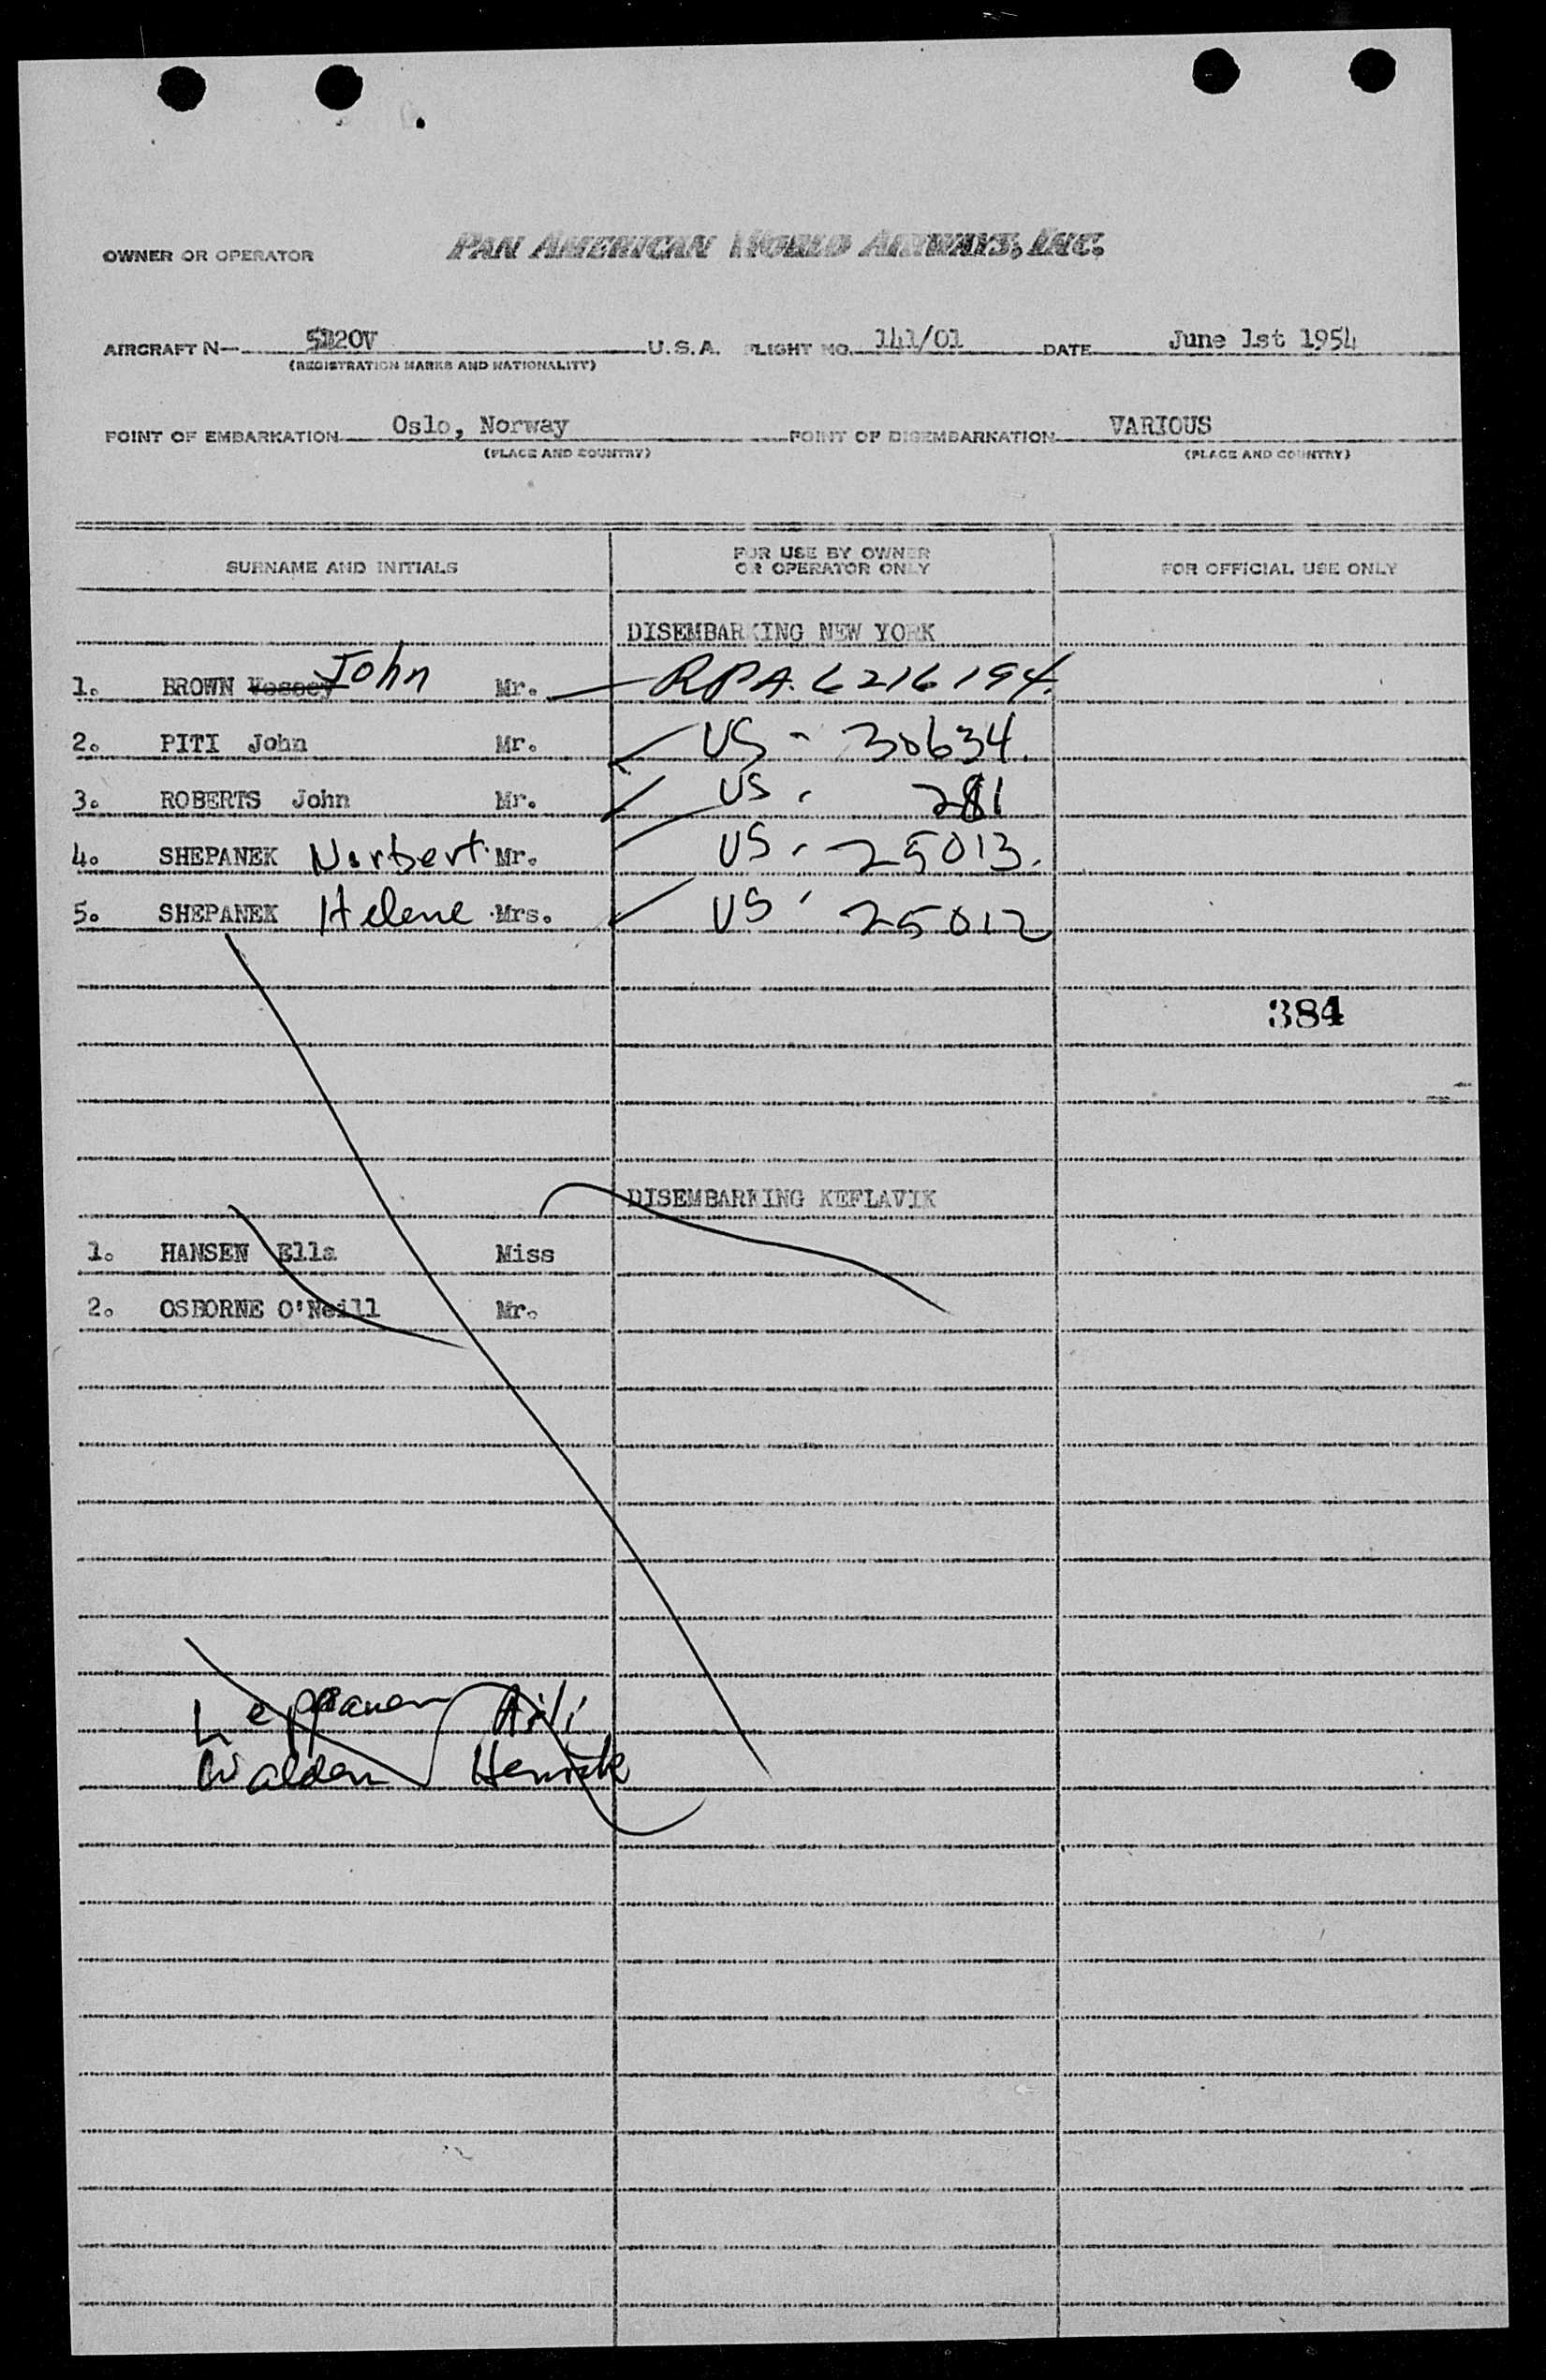 OWNER OR OPERATOR PAN AMERICAN WORLD AIRWAYS, INC.
AIRCRAFT N— U.S.A. FLIGHT NO. 141/01 DATE June 1st 1954
(REGISTRATION MARKS AND NATIONALITY)
POINT OF EMBARKATION Oslo, Norway POINT OF DISEMBARKATION VARIOUS
(PLACE AND COUNTRY) (PLACE AND COUNTRY)
SURNAME AND INITIALS FOR USE BY OWNER OR OPERATOR ONLY FOR OFFICIAL USE ONLY
DISEMBARKING NEW YORK
1. BROWN John Mr. RPA. 6216194.
2. PITI John Mr. US - 30634.
3. ROBERTS John Mr. US. 281
4. SHEPANEK Norbert Mr. US. 25013.
5. SHEPANEK Helene Mrs. US 25012
384
DISEMBARKING KEFLAVIK
1. HANSEN Ella Miss
2. OSBORNE O'Neill Mr.
Leppanen Aili
Walden Henrik